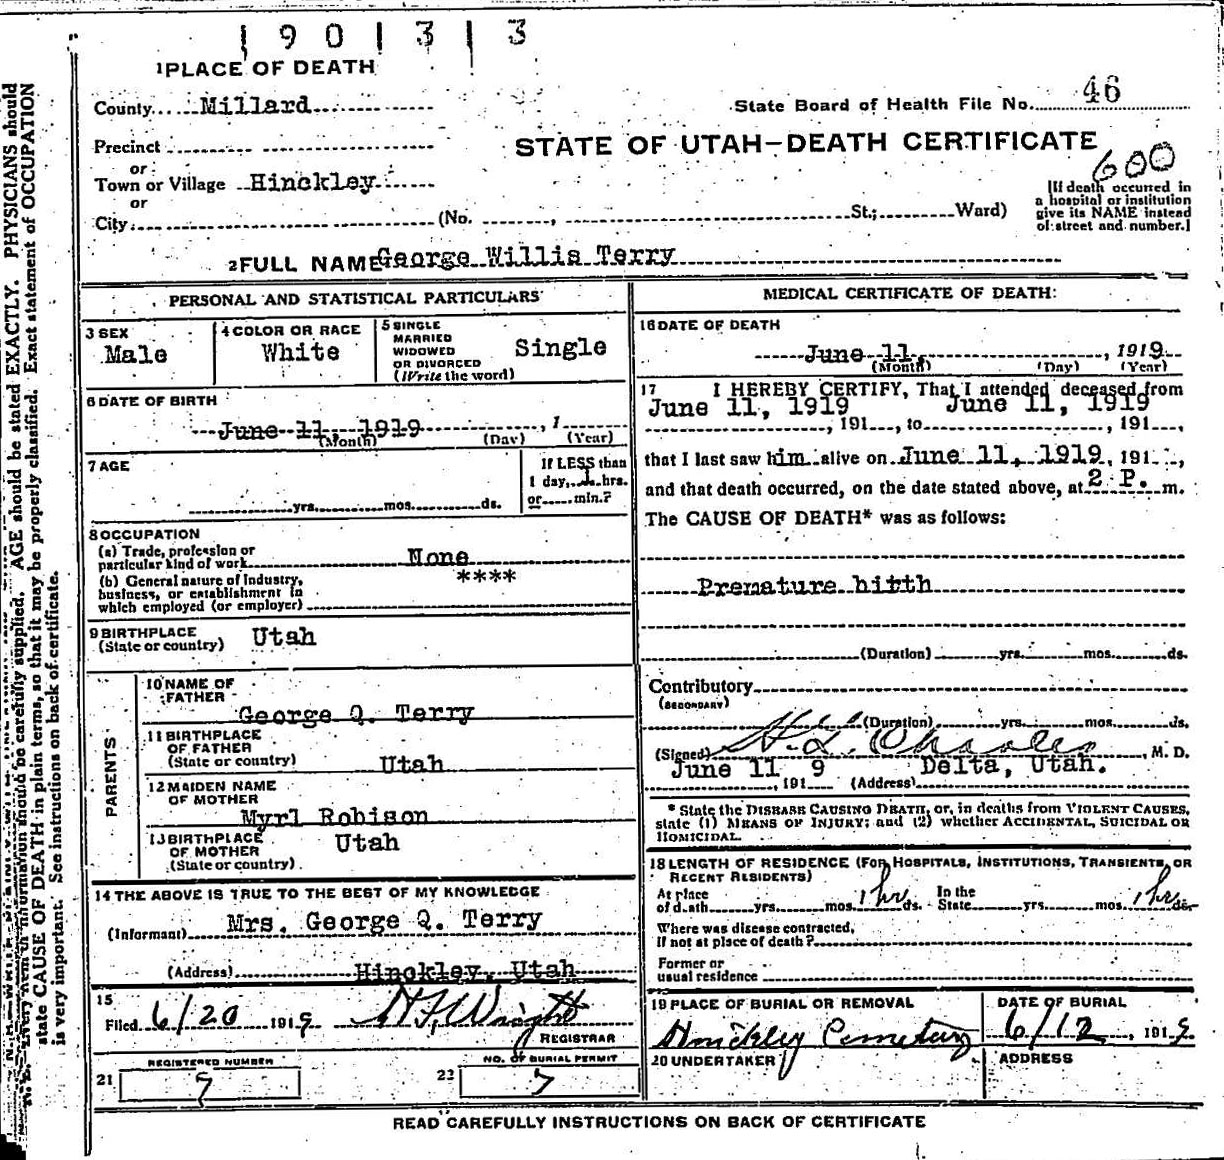 1 9 0 1 3 1 3
1 PLACE OF DEATH
County Millard
State Board of Health File No. 46
Precinct
STATE OF UTAH—DEATH CERTIFICATE
600
or
Town or Village Hinckley
or
City (No. , St.; Ward)
[If death occurred in
a hospital or institution
give its NAME instead
of street and number.]
2 FULL NAME George Willis Terry
PERSONAL AND STATISTICAL PARTICULARS
3 SEX
Male
4 COLOR OR RACE
White
5 SINGLE
MARRIED
WIDOWED
OR DIVORCED
(Write the word)
Single
6 DATE OF BIRTH
June 11, 1919 , 1
(Month) (Day) (Year)
7 AGE
yrs. mos. ds.
If LESS than
1 day, 1 hrs.
or min.?
8 OCCUPATION
(a) Trade, profession or
particular kind of work None
(b) General nature of industry, ****
business, or establishment in
which employed (or employer)
9 BIRTHPLACE
(State or country) Utah
PARENTS
10 NAME OF
FATHER
George Q. Terry
11 BIRTHPLACE
OF FATHER
(State or country) Utah
12 MAIDEN NAME
OF MOTHER
Myrl Robison
13 BIRTHPLACE
OF MOTHER
(State or country) Utah
14 THE ABOVE IS TRUE TO THE BEST OF MY KNOWLEDGE
(Informant) Mrs. George Q. Terry
(Address) Hinckley, Utah
15
Filed 6/20 1919 Wright
REGISTRAR
REGISTERED NUMBER
21 9
NO. OF BURIAL PERMIT
22 7
MEDICAL CERTIFICATE OF DEATH
16 DATE OF DEATH
June 11, , 1919
(Month) (Day) (Year)
17 I HEREBY CERTIFY, That I attended deceased from
June 11, 1919 June 11, 1919
, 191 , to , 191 ,
that I last saw him alive on June 11, 1919, 191 ,
and that death occurred, on the date stated above, at 2 P. m.
The CAUSE OF DEATH* was as follows:
Premature birth
(Duration) yrs. mos. ds.
Contributory
(SECONDARY)
(Duration) yrs. mos. ds.
(Signed) , M. D.
June 11 9 Delta, Utah.
, 191 (Address)
* State the DISEASE CAUSING DEATH, or, in deaths from VIOLENT CAUSES,
state (1) MEANS OF INJURY; and (2) whether ACCIDENTAL, SUICIDAL OR
HOMICIDAL.
18 LENGTH OF RESIDENCE (FOR HOSPITALS, INSTITUTIONS, TRANSIENTS, OR
RECENT RESIDENTS)
At place
of death yrs. mos. 1 hr ds. In the
State yrs. mos. 1 hr ds.
Where was disease contracted,
if not at place of death?
Former or
usual residence
19 PLACE OF BURIAL OR REMOVAL
Hinckley Cemetery
DATE OF BURIAL
6/12 , 1919
20 UNDERTAKER
ADDRESS
READ CAREFULLY INSTRUCTIONS ON BACK OF CERTIFICATE
information should be carefully supplied. AGE should be stated EXACTLY. PHYSICIANS should
state CAUSE OF DEATH in plain terms, so that it may be properly classified. Exact statement of OCCUPATION
is very important. See instructions on back of certificate.